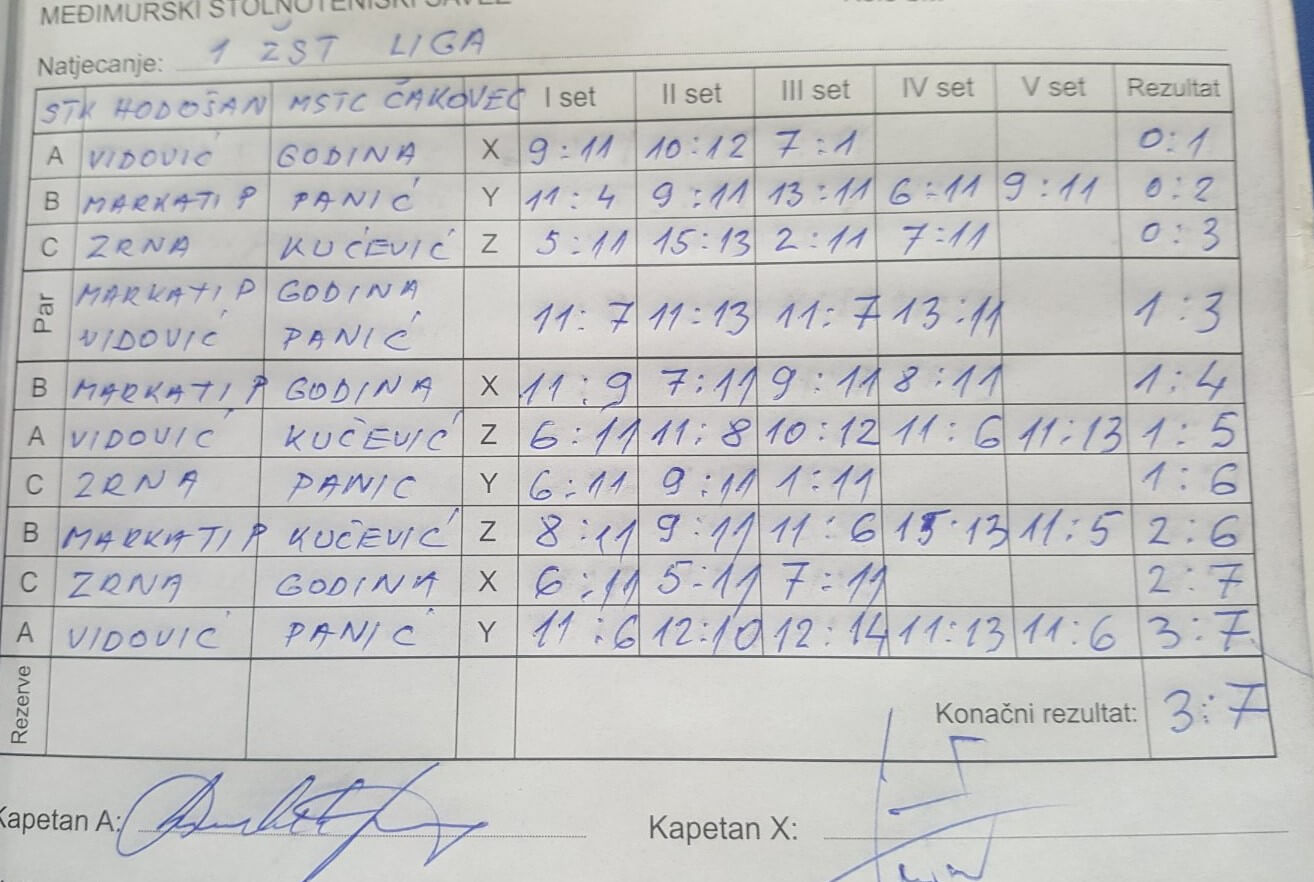 MEĐIMURSKI STOLNOTENISKI SAVEZ
Natjecanje: 1 ŽST LIGA
STK HODOŠAN MSTC ČAKOVEC I set II set III set IV set V set Rezultat
A VIDOVIĆ GODINA X 9:11 10:12 7:1 0:1
B MARKATI P PANIĆ Y 11:4 9:11 13:11 6:11 9:11 0:2
C ZRNA KUČEVIĆ Z 5:11 15:13 2:11 7:11 0:3
Par MARKATI P GODINA
VIDOVIĆ PANIĆ 11:7 11:13 11:7 13:11 1:3
B MARKATI P GODINA X 11:9 7:11 9:11 8:11 1:4
A VIDOVIĆ KUČEVIĆ Z 6:11 11:8 10:12 11:6 11:13 1:5
C ZRNA PANIC Y 6:11 9:11 1:11 1:6
B MARKATI P KUČEVIĆ Z 8:11 9:11 11:6 15:13 11:5 2:6
C ZRNA GODINA X 6:11 5:11 7:11 2:7
A VIDOVIĆ PANIĆ Y 11:6 12:10 12:14 11:13 11:6 3:7
Rezerve Konačni rezultat: 3:7
Kapetan A: Kapetan X: